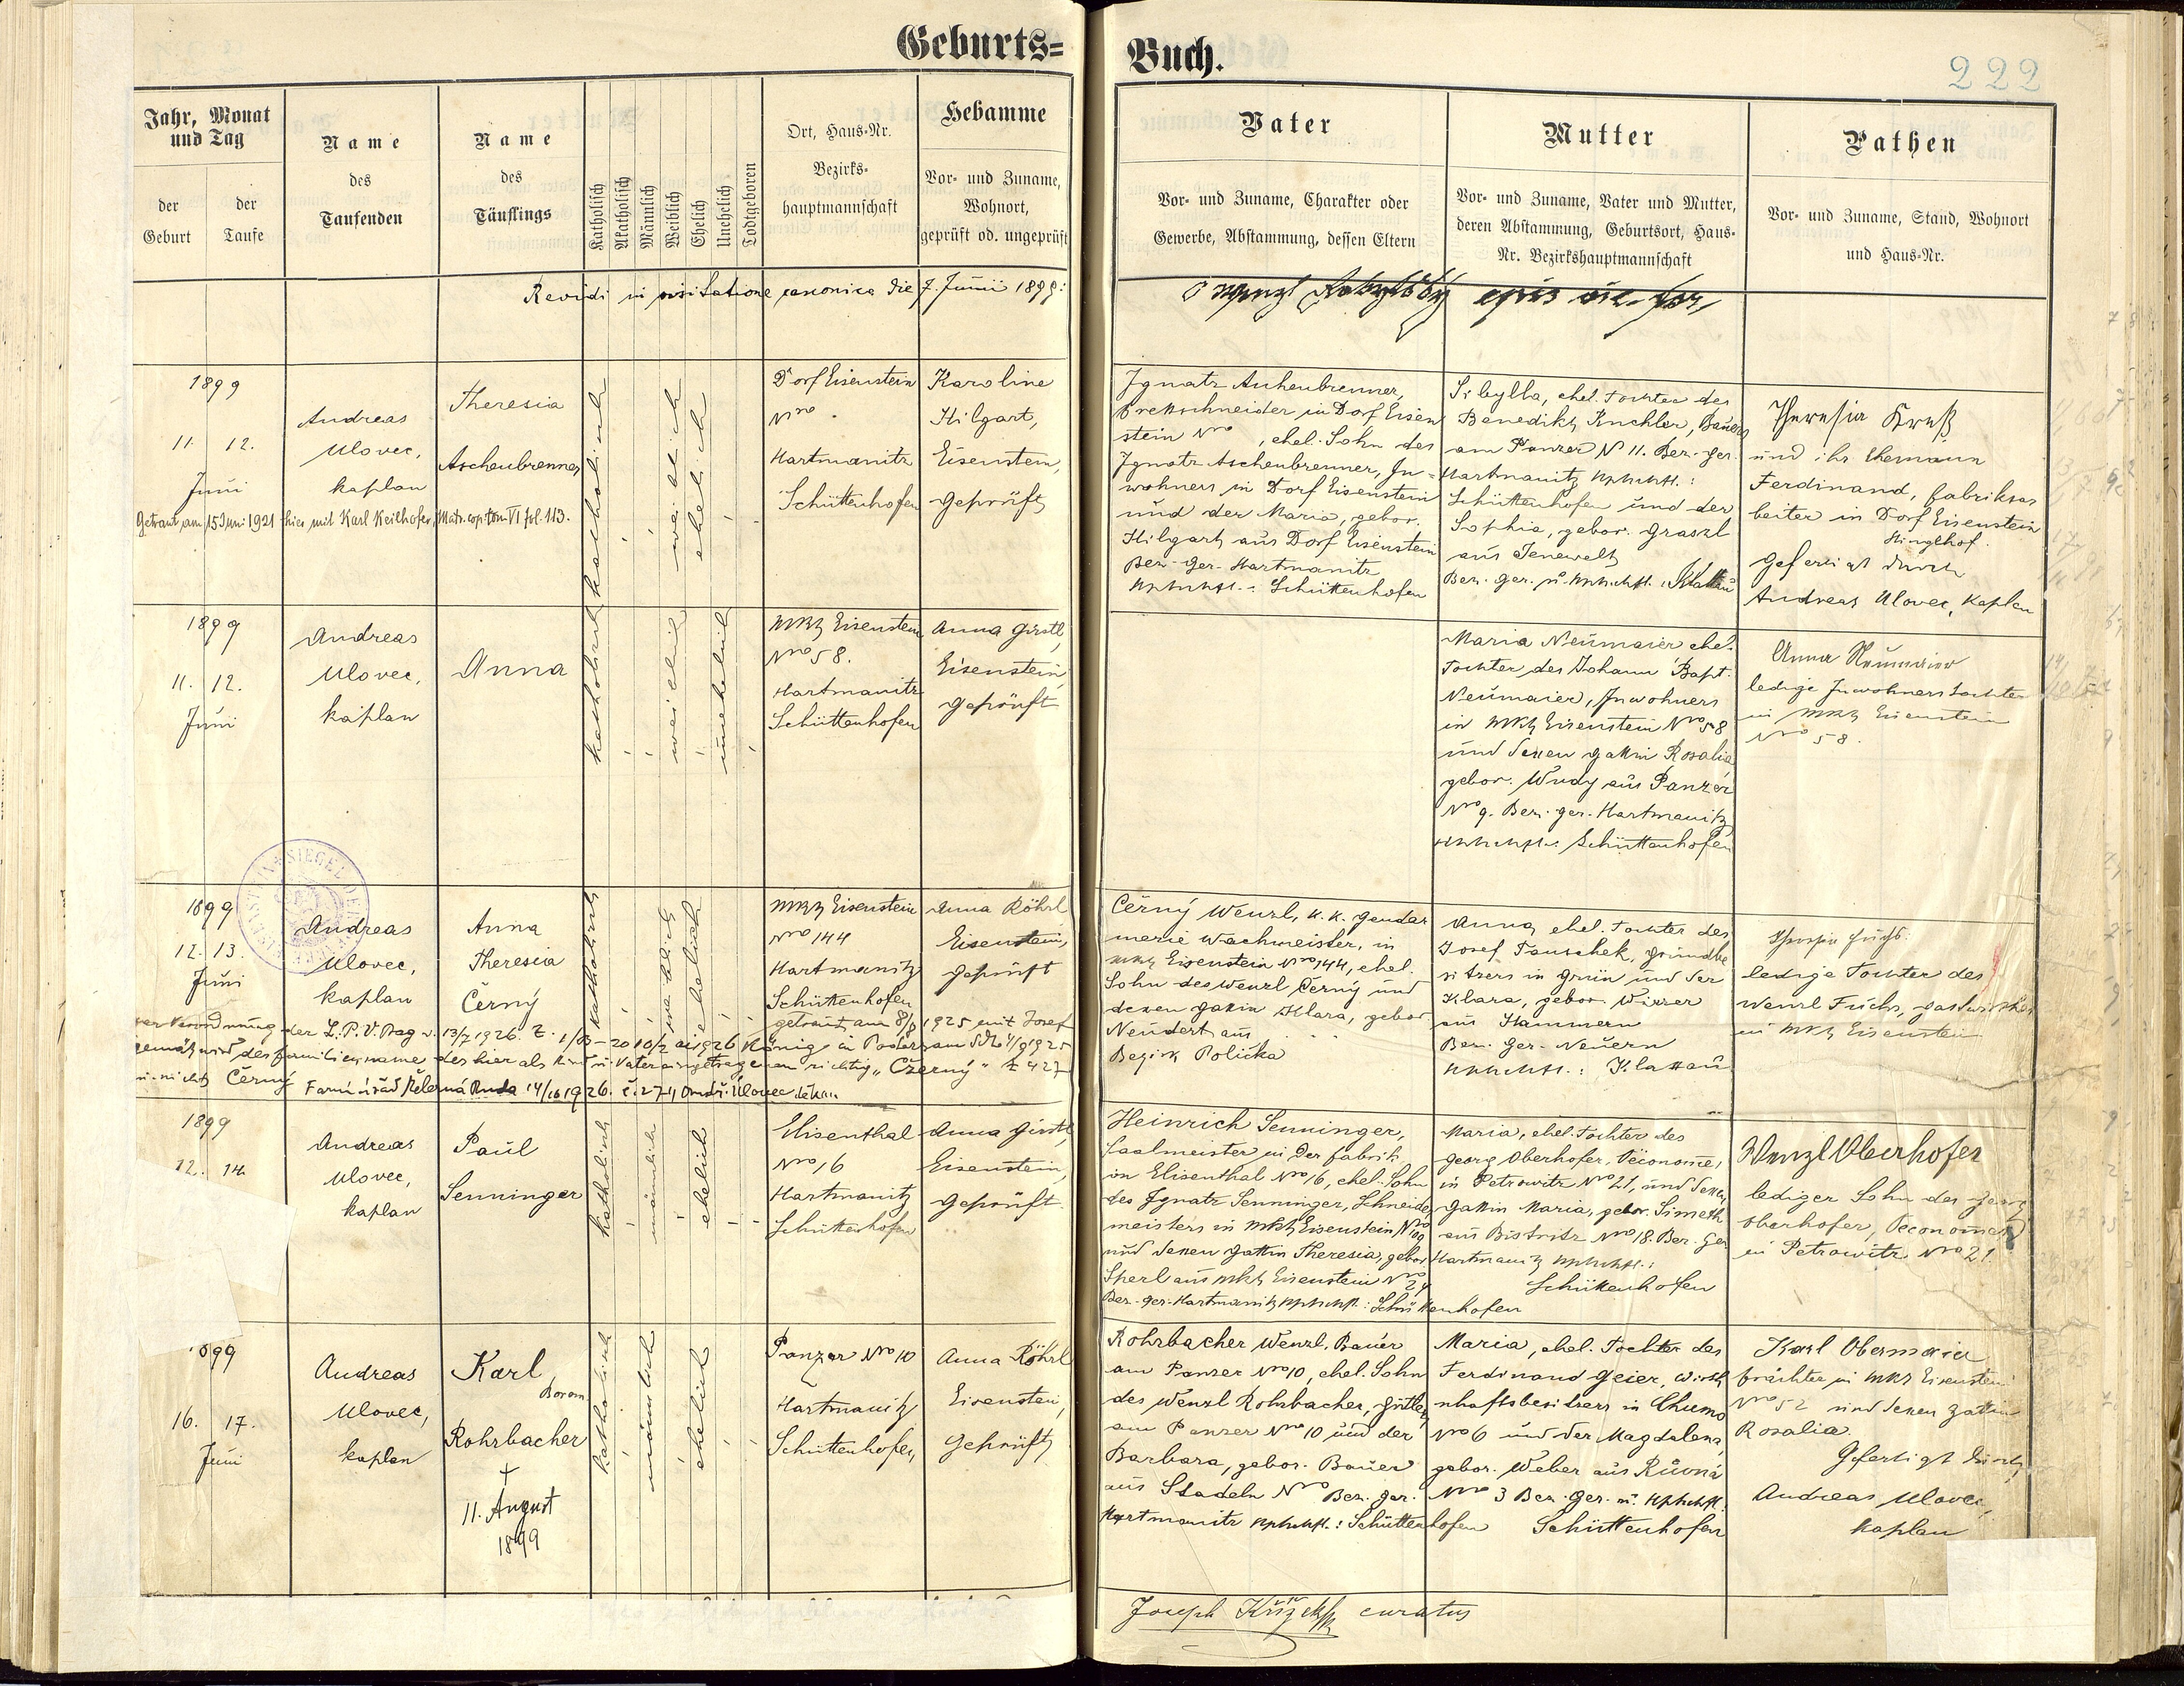 Geburts=
Buch.
222
Jahr, Monat und Tag
der Geburt
der Taufe
Name des Taufenden
Name des Täuflings
Katholisch
Akatholisch
Männlich
Weiblich
Ehelich
Unehelich
Todtgeboren
Ort, Haus-Nr.
Bezirks-
hauptmannschaft
Hebamme
Vor- und Zuname,
Wohnort,
geprüft od. ungeprüft
Vater
Vor- und Zuname, Charakter oder
Gewerbe, Abstammung, dessen Eltern
Mutter
Vor- und Zuname, Vater und Mutter,
deren Abstammung, Geburtsort, Haus-
Nr. Bezirkshauptmannschaft
Pathen
Vor- und Zuname, Stand, Wohnort
und Haus-Nr.
Revidi in visitatione canonica die 7. Junii 1899:
1899
11. 12.
Juni
Andreas
Ulovec,
kaplan
Theresia
Aschenbrenner
katholisch
weiblich
ehelich
Dorf Eisenstein
Nro .
Hartmanitz
Schüttenhofen
Karoline
Hilgart,
Eisenstein,
geprüft
Getraut am 15 Juni 1921 hier mit Karl Keilhofer, Matr. cop. tom VI fol. 113.
Ignatz Aschenbrenner,
Brettschneider in Dorf Eisen
stein Nro , ehel. Sohn des
Ignatz Aschenbrenner, In-
wohners in Dorf Eisenstein
und der Maria, gebor.
Hilgart aus Dorf Eisenstein
Bez.-Ger. Hartmanitz
Schüttenhofen
Sibylla, ehel. Tochter des
Benedikt Kuchler, Bauers
am Panzer N 11. Bez. Ger.
Hartmanitz
Schüttenhofen und der
Sophia, gebor. Graszl
aus Jenewelt
Bez. Ger. u. Klattau
Theresia Kreß
und ihr Ehemann
Ferdinand, Fabriksar
beiter in Dorf Eisenstein
gefertigt durch
Andreas Ulovec, Kaplan
1899
11. 12.
Juni
Andreas
Ulovec,
kaplan
Anna
katholisch
weiblich
unehelich
Mkt Eisenstein
Nro 58.
Hartmanitz
Schüttenhofen
Anna Girstl,
Eisenstein
geprüft
Maria Neumaier ehel.
Tochter des Johann Bapt.
Neumaier, Inwohners
in Mkt Eisenstein Nro 58
und dessen Gattin Rosalia
gebor. Wudy aus Panzer
Nro 9. Bez. Ger. Hartmanitz
Schüttenhofen
Anna Neumaier
ledige Inwohnerstochter
in Mkt Eisenstein
Nro 58.
1899
12. 13.
Juni
Andreas
Ulovec,
kaplan
Anna
Theresia
Černý
katholisch
weiblich
ehelich
Mkt Eisenstein
Nro 144
Hartmanitz
Schüttenhofen
Anna Röhrl
Eisenstein,
geprüft
getraut am 8/9 1925 mit Josef
König in
der Familienname des hier als Kind u. Vater eingetragenen richtig „Czerny" Z 427
u. nicht Černý Farní úřad Železná Ruda 14/10 1926. č. 274, Ondř. Úlovec děkan
Černý Wenzl, k. k. Gendar
merie Wachmeister, in
Mkt Eisenstein Nro 144, ehel.
Sohn des Wenzl Černý und
dessen Gattin Klara, gebor.
Neudert aus
Bezirk Polička
Anna, ehel. Tochter des
Josef Tauschek, Grundbe
sitzers in Grün und der
Klara, gebor. Wirrer
aus Hammern
Bez. Ger. Neuern
Klattau
Theresia Fuchs.
ledige Tochter des
Wenzl Fuchs, Gastwirthes
in Mkt Eisenstein
1899
12. 14.
Andreas
Ulovec,
kaplan
Paul
Senninger
katholisch
männlich
ehelich
Elisenthal
Nro 16
Hartmanitz
Schüttenhofen
Anna Girstl,
Eisenstein,
geprüft
Heinrich Senninger,
Saalmeister in der Fabrik
in Elisenthal Nro 16, ehel. Sohn
des Ignatz Senninger, Schneider
meisters in Mkt Eisenstein Nro 109
und dessen Gattin Theresia, gebor.
Sperl aus Mkt Eisenstein Nro 24
Bez.-Ger. Hartmanitz Schüttenhofen
Maria, ehel. Tochter des
Georg Oberhofer, Oeconome,
in Petrowitz Nro 21, und dessen
Gattin Maria, gebor. Simeth
aus Bistritz Nro 18. Bez. Ger
Hartmanitz
Schüttenhofen
Wenzl Oberhofer
lediger Sohn des Georg
Oberhofer, Oeconomen
in Petrowitz Nro 21.
1899
16. 17.
Juni
Andreas
Ulovec,
kaplan
Karl
Borom.
Rohrbacher
†
11. August
1899
katholisch
männlich
ehelich
Panzer Nro 10
Hartmanitz
Schüttenhofen
Anna Röhrl
Eisenstein,
geprüft
Rohrbacher Wenzl, Bauer
am Panzer Nro 10, ehel. Sohn
des Wenzl Rohrbacher, Gütler,
am Panzer Nro 10 und der
Barbara, gebor. Bauer
aus Stadeln Nro Bez. Ger.
Hartmanitz Schüttenhofen
Maria, ehel. Tochter des
Ferdinand Geier, Wirth
schaftsbesitzers in Chumo
Nro 6 und der Magdalena,
gebor. Weber aus Růwná
Nro 3 Bez. Ger. u.
Schüttenhofen
Karl Obermaier
frächter in Mkt Eisenstein
Nro 52 und dessen Gattin
Rosalia.
Gefertigt durch
Andreas Ulovec,
kaplan
Joseph Křížek curatus